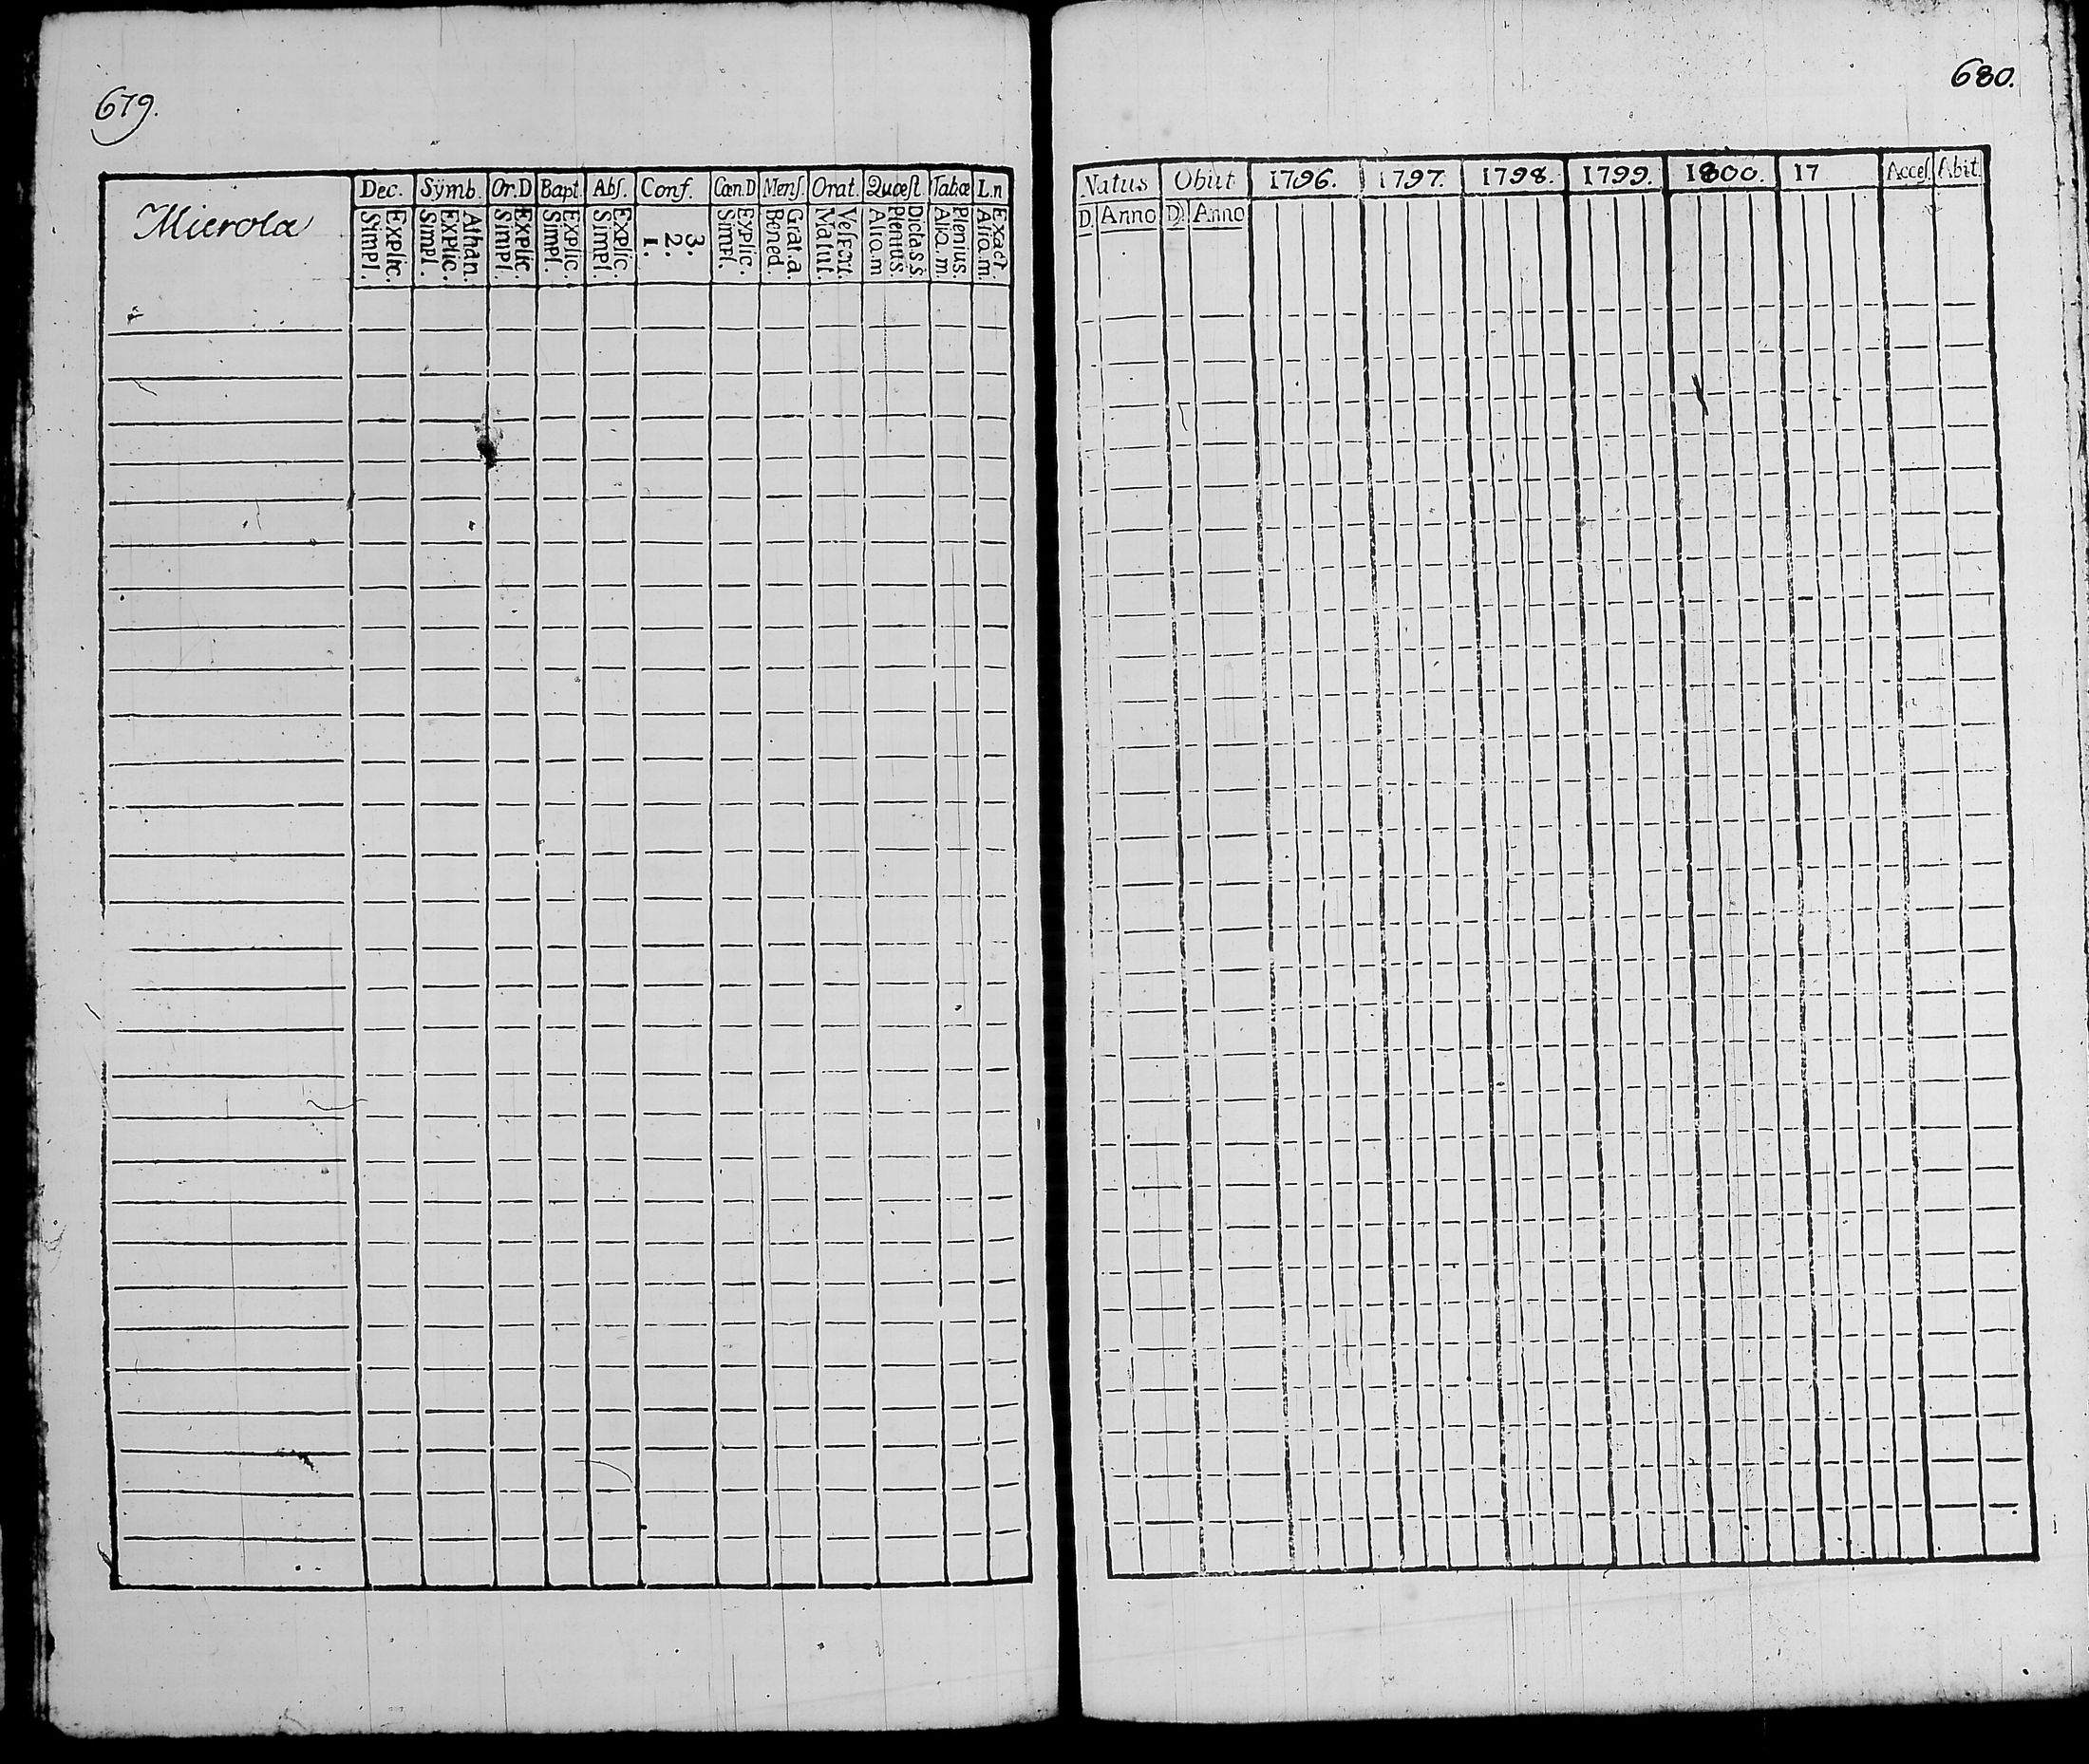 679.
Mierola
Dec. Sÿmb. Or.D Bapt. Abſ. Conf. Cœn.D Menſ. Orat. Quœſt Tabœ L.n
Explic. Simpl.
Athan. Explic. Simpl.
Explic. Simpl.
Explic. Simpl.
Explic. Simpl.
3. 2. 1.
Explic. Simpl.
Grat.a. Bened.
Veſpert. Matut.
Dicta.s.s. Plenius. Aliq.m
Plenius. Aliq.m.
Exact. Aliq.m.
680.
Natus Obiit 1796. 1797. 1798. 1799. 1800. 17 Acceſ. Abit.
D. Anno D. Anno